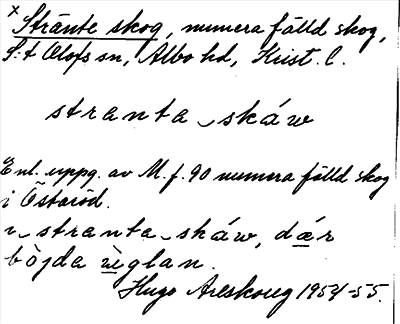 × Stränte skog, numera fälld skog,
S:t Olofs sn, Albo hd, Krist. l.
stranta skáw
Enl. uppg. av M. f. 90 numera fälld skog
i Östaröd.
stranta skáw, dær
bòjda ùglan.
Hugo Areskoug 1954-55.